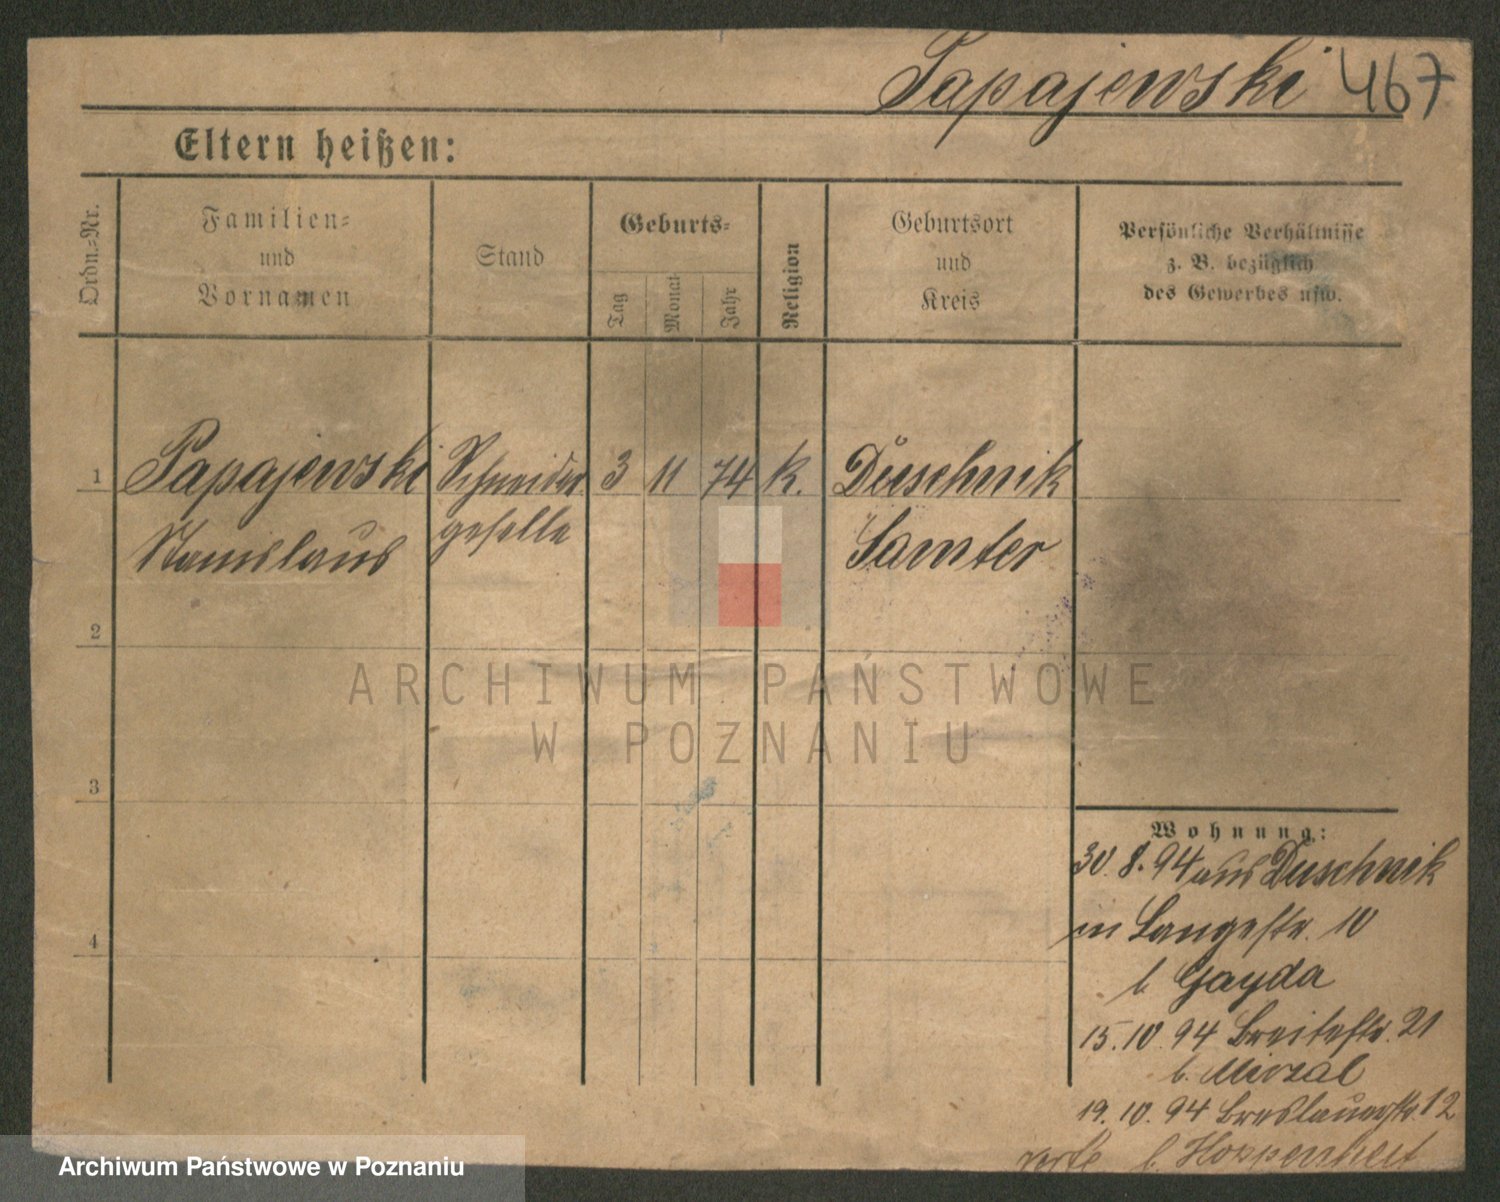 Papajewski 467
Eltern heißen:
Ordn.=Nr.
Familien=
und
Vornamen
Stand
Geburts=
Tag
Monat
Jahr
Religion
Geburtsort
und
Kreis
Persönliche Verhältnisse
z. B. bezüglich
des Gewerbes usw.
1 Papajewski Schneider 3 11 74 k. Duschnik
Stanislaus geselle Samter
2
3
4
Wohnung:
30.8.94 aus Duschnik
in Langestr. 10
b. Gayda
15.10.94 Breitestr. 21
b. Mirzal
19.10.94 Breslauerstr. 12
b. Hoppenheit
ARCHIWUM PAŃSTWOWE
W POZNANIU
Archiwum Państwowe w Poznaniu